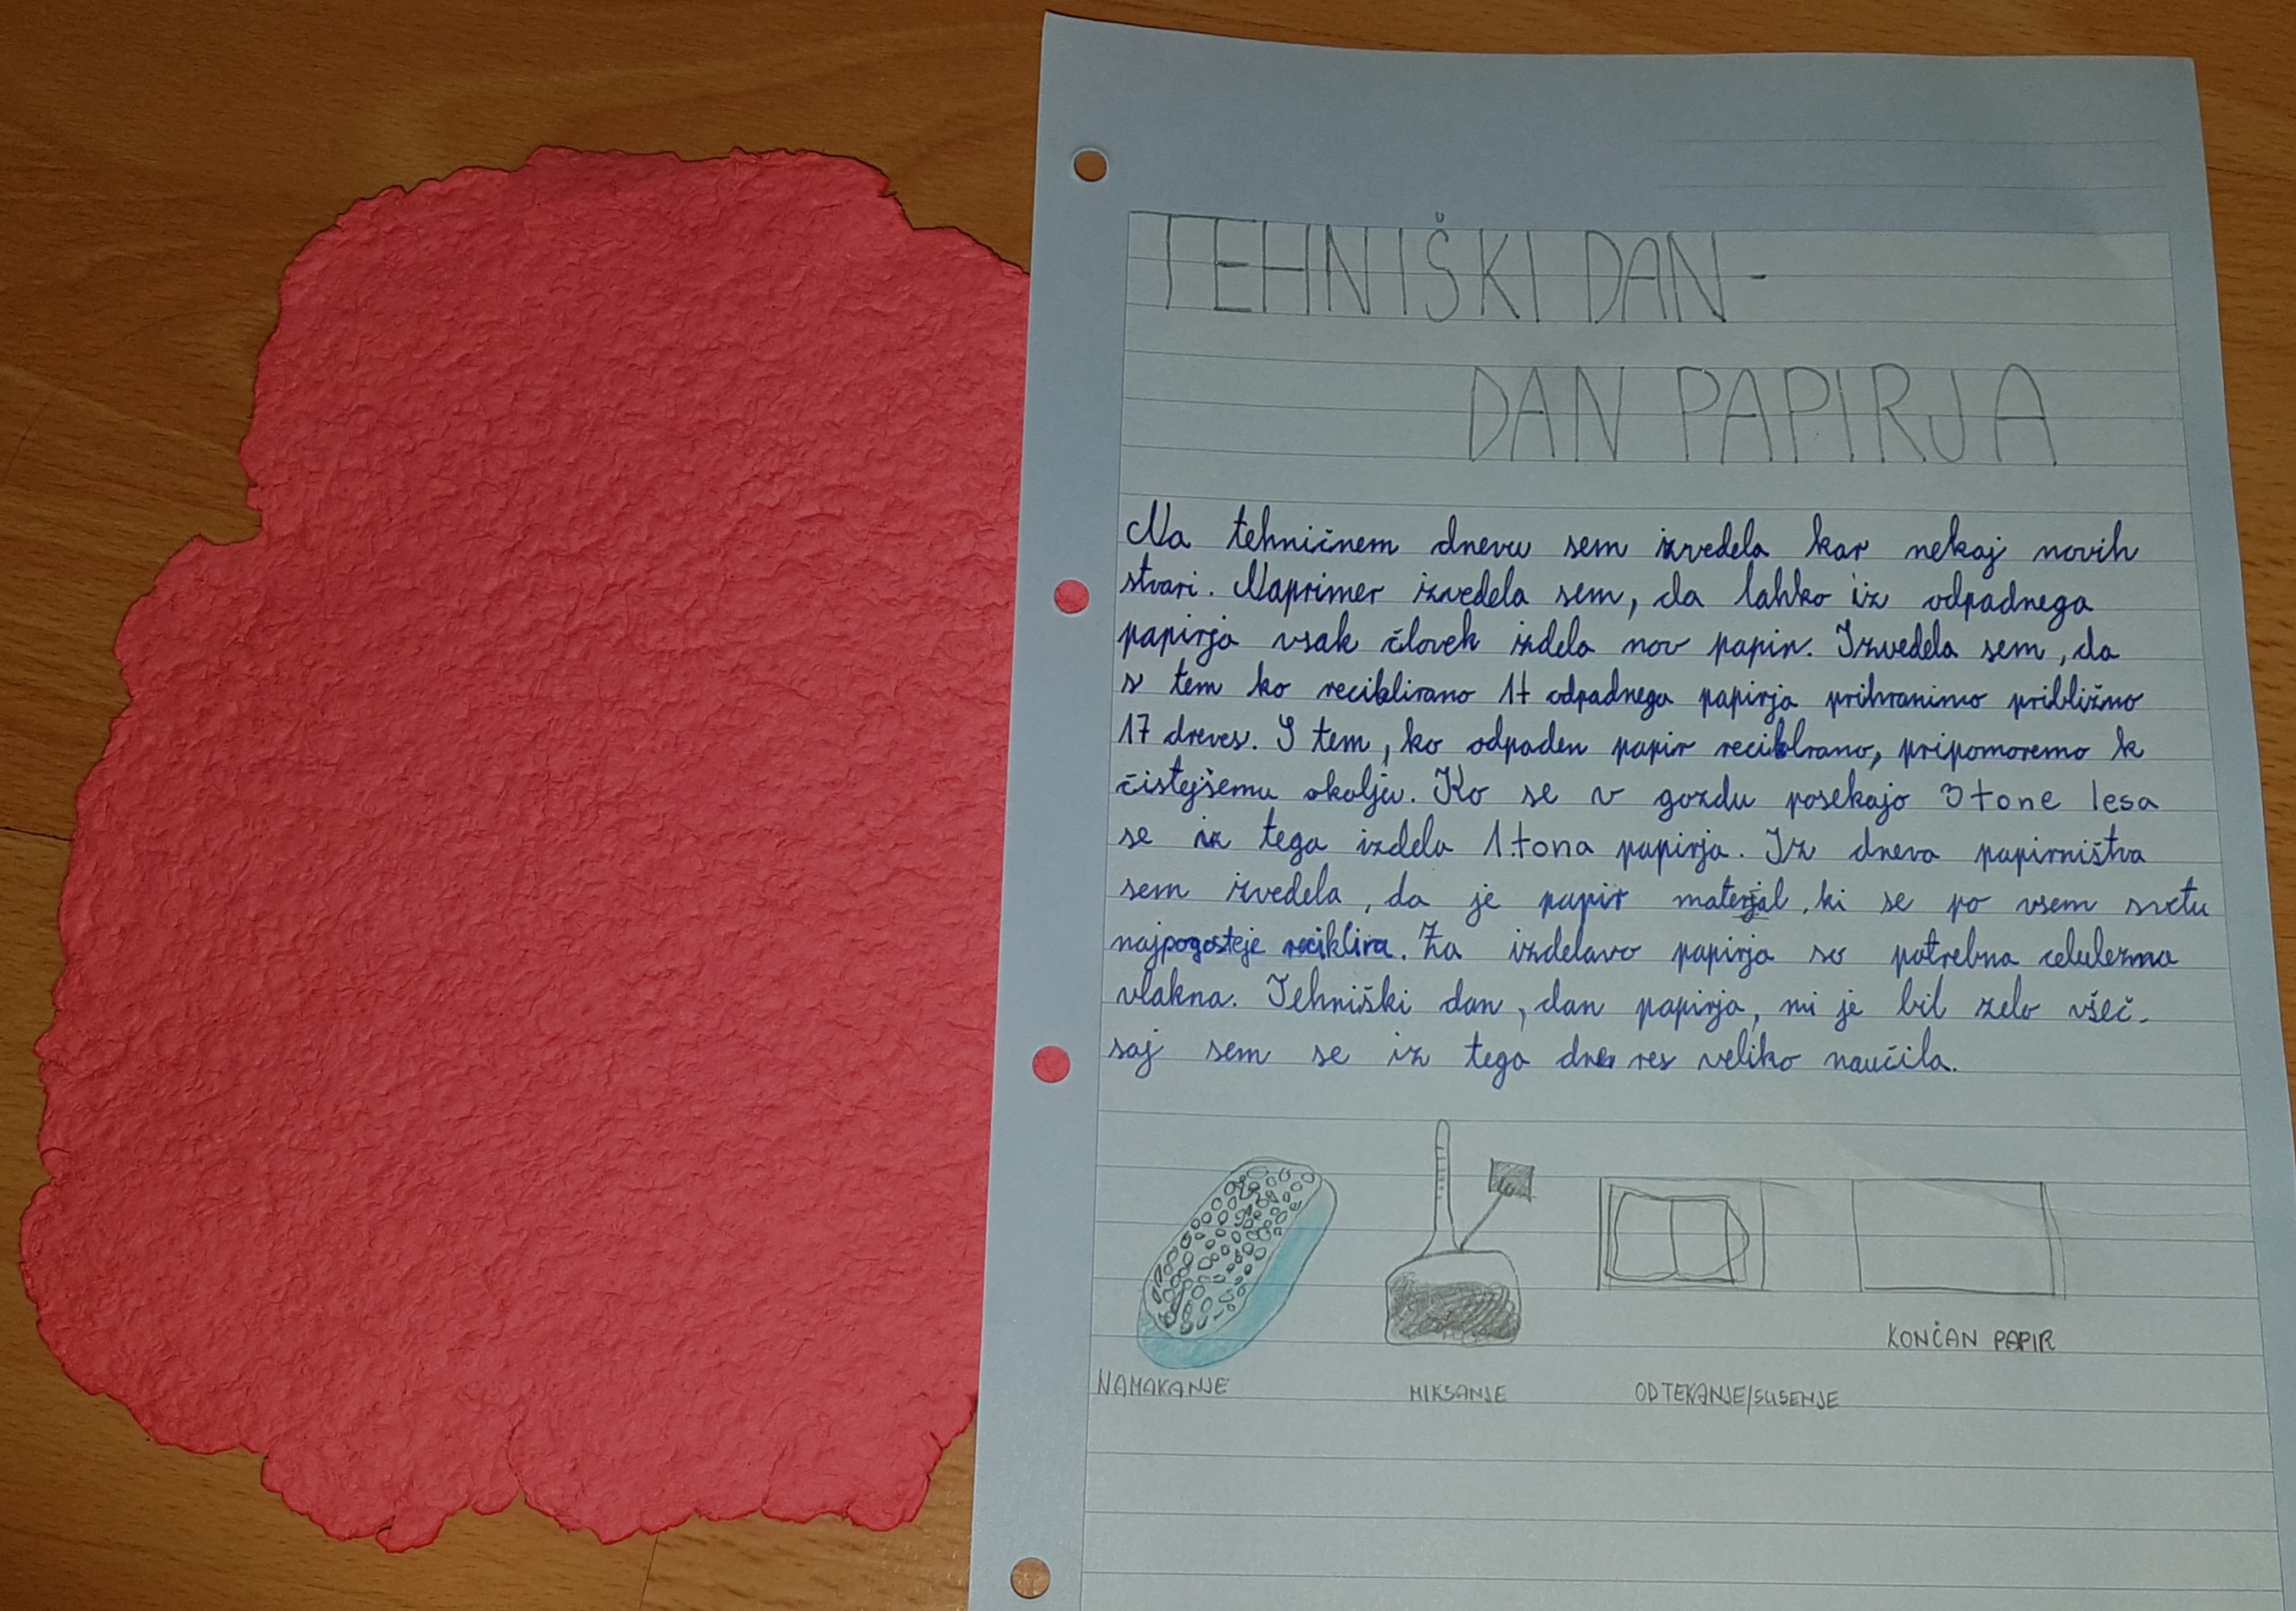 TEHNIŠKI DAN-
DAN PAPIRJA
Na tehničnem dnevu sem izvedela kar nekaj novih
stvari. Naprimer izvedela sem, da lahko iz odpadnega
papirja vsak človek izdela nov papir. Izvedela sem, da
s tem ko recikliramo 1t odpadnega papirja prihranimo približno
17 dreves. S tem, ko odpaden papir reciklramo, pripomoremo k
čistejšemu okolju. Ko se v gozdu posekajo 3 tone lesa
se iz tega izdela 1 tona papirja. Iz dneva papirništva
sem izvedela, da je papir material, ki se po vsem svetu
najpogosteje reciklira. Za izdelavo papirja so potrebna celulezna
vlakna. Tehniški dan, dan papirja, mi je bil zelo všeč
saj sem se iz tega dne res veliko naučila.
KONČAN PAPIR
NAMAKANJE MIKSANJE ODTEKANJE/SUSENJE